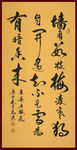 墙角數枝梅凌寒獨
自開遥知不是雪為
有暗香来